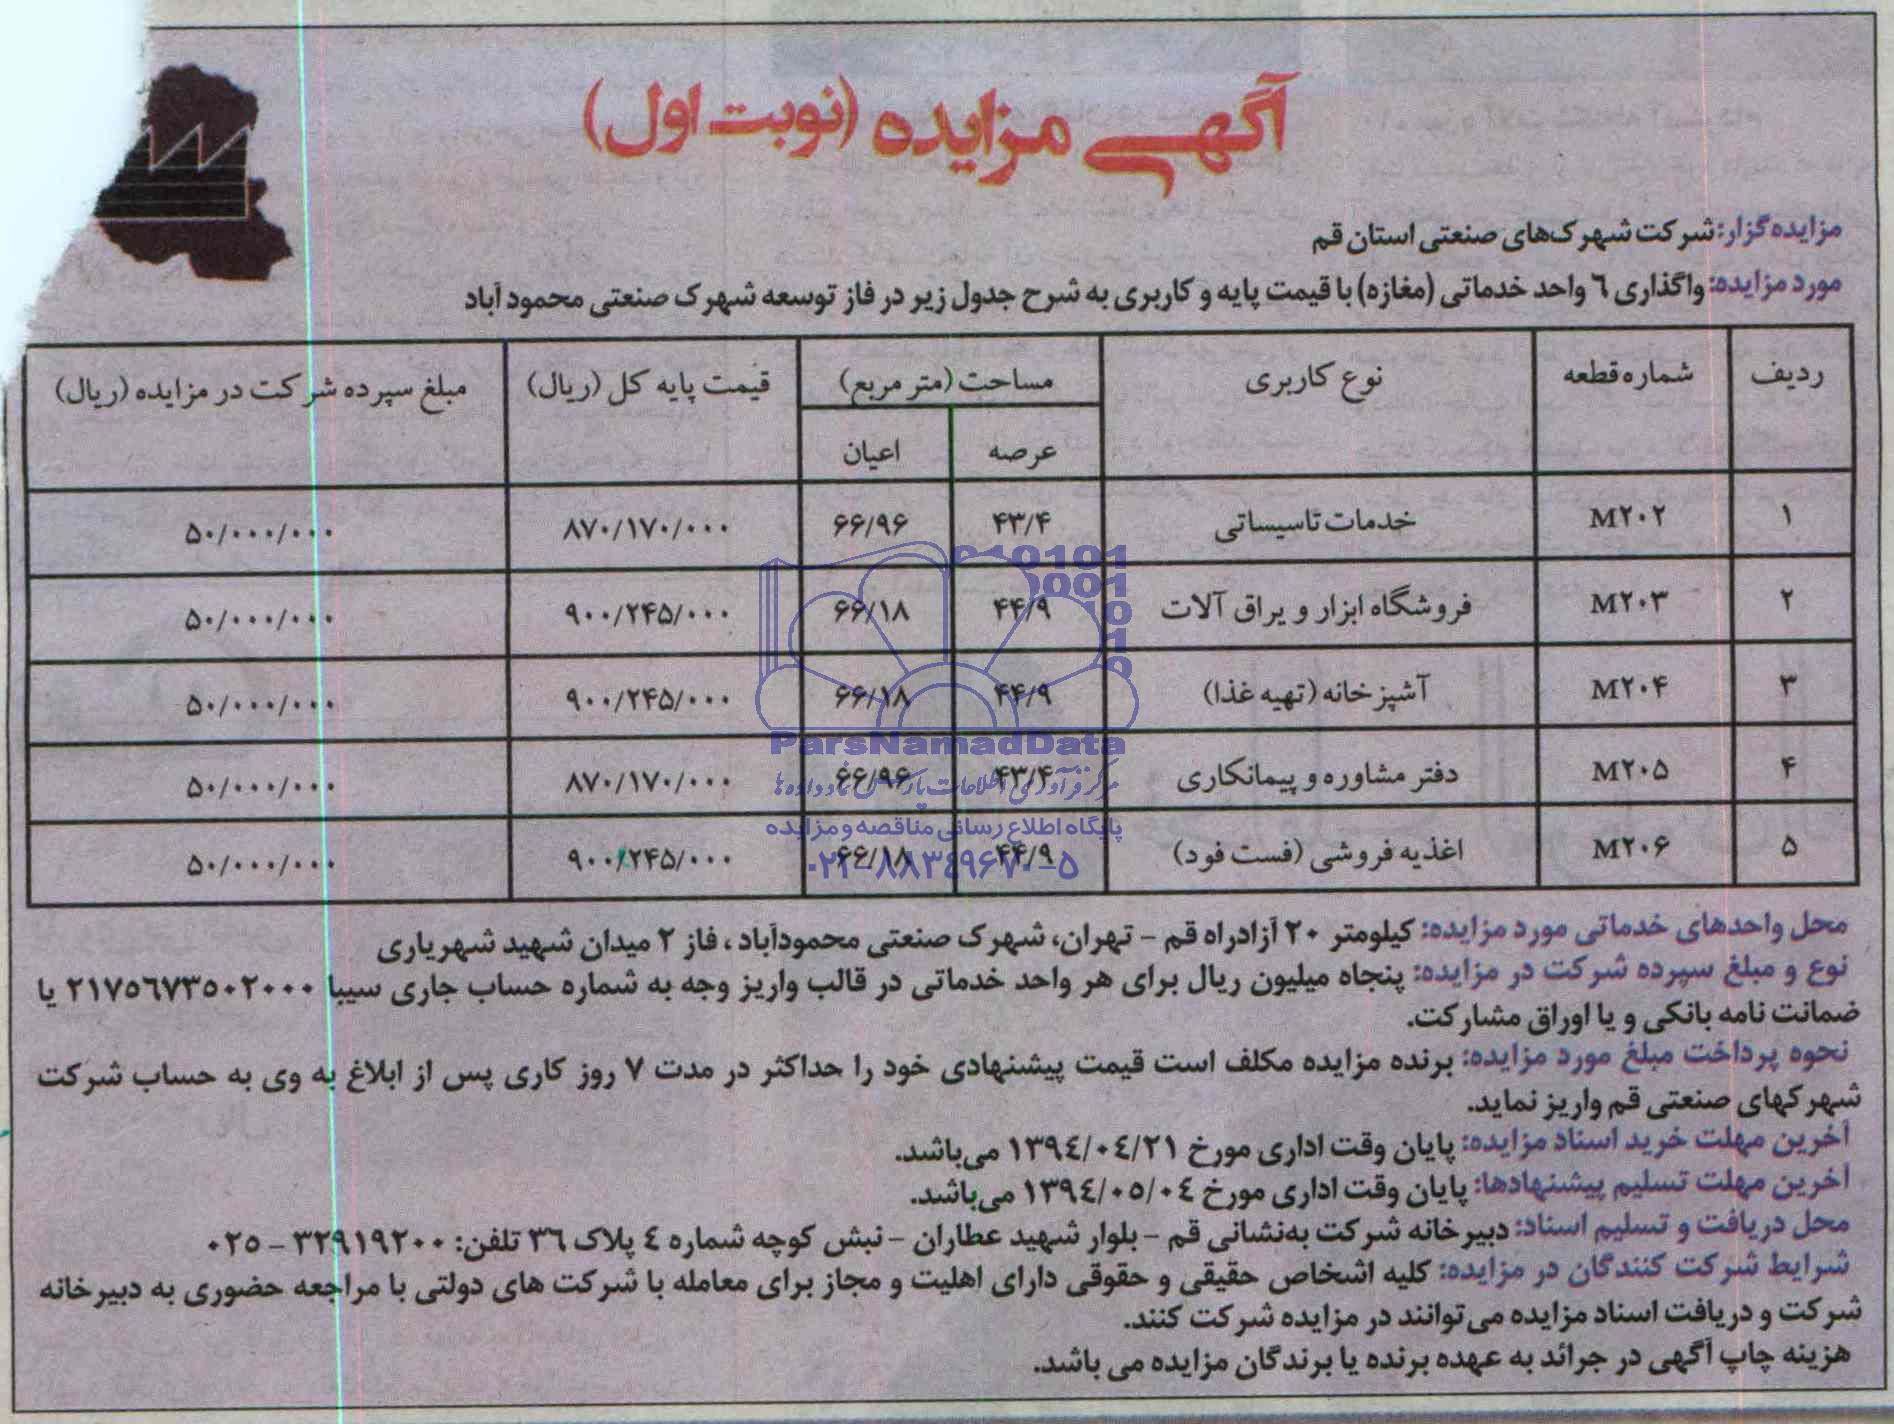 آگهی مزایده (نوبت اول)
مزایده‌گزار: شرکت شهرک‌های صنعتی استان قم
مورد مزایده: واگذاری ٦ واحد خدماتی (مغازه) با قیمت پایه و کاربری به شرح جدول زیر در فاز توسعه شهرک صنعتی محمود آباد
ردیف شماره قطعه نوع کاربری مساحت (متر مربع) قیمت پایه کل (ریال) مبلغ سپرده شرکت در مزایده (ریال)
عرصه اعیان
۱ M۲۰۲ خدمات تاسیساتی ۴۳/۴ ۶۶/۹۶ ۸۷۰/۱۷۰/۰۰۰ ۵۰/۰۰۰/۰۰۰
۲ M۲۰۳ فروشگاه ابزار و یراق آلات ۴۴/۹ ۶۶/۱۸ ۹۰۰/۲۴۵/۰۰۰ ۵۰/۰۰۰/۰۰۰
۳ M۲۰۴ آشپزخانه (تهیه غذا) ۴۴/۹ ۶۶/۱۸ ۹۰۰/۲۴۵/۰۰۰ ۵۰/۰۰۰/۰۰۰
۴ M۲۰۵ دفتر مشاوره و پیمانکاری ۴۳/۴ ۶۶/۹۶ ۸۷۰/۱۷۰/۰۰۰ ۵۰/۰۰۰/۰۰۰
۵ M۲۰۶ اغذیه فروشی (فست فود) ۴۴/۹ ۶۶/۱۸ ۹۰۰/۲۴۵/۰۰۰ ۵۰/۰۰۰/۰۰۰
ParsNamadData
مرکز فرآوری اطلاعات پارس نماد داده‌ها
پایگاه اطلاع رسانی مناقصه و مزایده
۰۲۱-۸۸۳۴۹۶۷۰-۵
محل واحدهای خدماتی مورد مزایده: کیلومتر ۲۰ آزادراه قم - تهران، شهرک صنعتی محمودآباد، فاز ۲ میدان شهید شهریاری
نوع و مبلغ سپرده شرکت در مزایده: پنجاه میلیون ریال برای هر واحد خدماتی در قالب واریز وجه به شماره حساب جاری سیبا ۲۱۷٥٦۷۳٥۰۲۰۰۰ یا
ضمانت نامه بانکی و یا اوراق مشارکت.
نحوه پرداخت مبلغ مورد مزایده: برنده مزایده مکلف است قیمت پیشنهادی خود را حداکثر در مدت ۷ روز کاری پس از ابلاغ به وی به حساب شرکت
شهرکهای صنعتی قم واریز نماید.
آخرین مهلت خرید اسناد مزایده: پایان وقت اداری مورخ ۱۳۹٤/۰٤/۲۱ می‌باشد.
آخرین مهلت تسلیم پیشنهادها: پایان وقت اداری مورخ ۱۳۹٤/۰٥/۰٤ می‌باشد.
محل دریافت و تسلیم اسناد: دبیرخانه شرکت به‌نشانی قم - بلوار شهید عطاران - نبش کوچه شماره ٤ پلاک ۳٦ تلفن: ۳۲۹۱۹۲۰۰ - ۰۲٥
شرایط شرکت کنندگان در مزایده: کلیه اشخاص حقیقی و حقوقی دارای اهلیت و مجاز برای معامله با شرکت های دولتی با مراجعه حضوری به دبیرخانه
شرکت و دریافت اسناد مزایده می‌توانند در مزایده شرکت کنند.
هزینه چاپ آگهی در جرائد به عهده برنده یا برندگان مزایده می باشد.